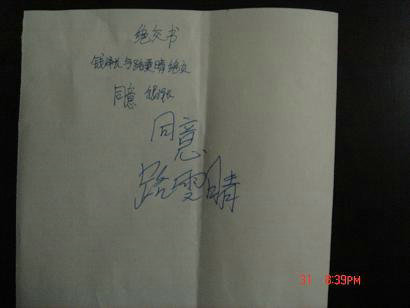 绝交书
钱 与路雯晴绝交
同意
同意
路雯晴
31 8:39PM